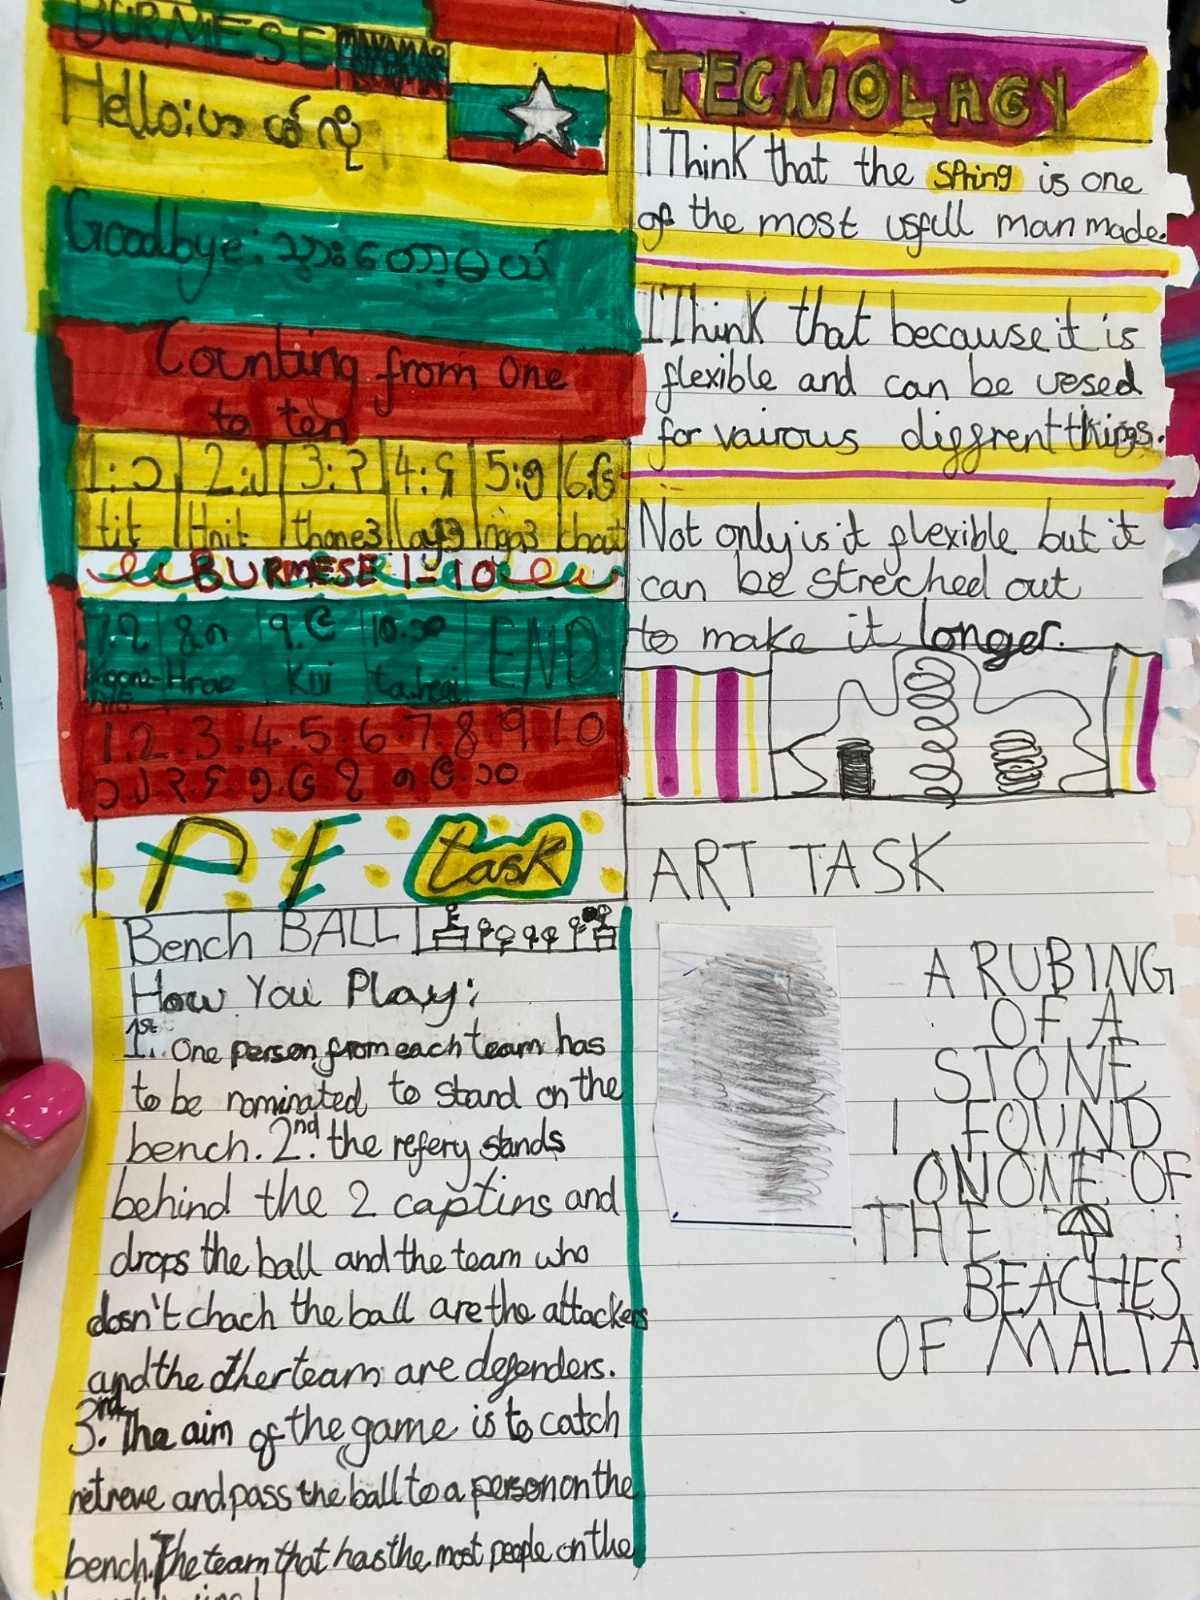 BURMESE
Hello: ဟယ်လို
Goodbye: သွားတော့မယ်
Counting from One
to ten
1:၁ 2:၂ 3:၃ 4:၄ 5:၅ 6.၆
tit Hnit thone3 lay3 nga3 chaut
BURMESE 1-10
7.၇ 8.၈ 9.၉ 10.၁၀ END
Kui
1.2.3.4.5.6.7.8.9.10
၁.၂.၃.၄.၅.၆.၇.၈.၉.၁၀
PE task
Bench BALL
How You Play:
1st. One person from each team has
to be nominated to stand on the
bench. 2nd. the refery stands
behind the 2 captins and
drops the ball and the team who
dosn't chach the ball are the attackers
and the other team are defenders.
3rd. The aim of the game is to catch
retreve and pass the ball to a person on the
bench. The team that has the most people on the
TECNOLAGY
I Think that the spring is one
of the most usfull man made.
I Think that because it is
flexible and can be uesed
for vairous diffrent things.
Not only is it flexible but it
can be streched out
to make it longer.
ART TASK
A RUBING
OF A
STONE
I FOUND
ON ONE OF
THE
BEACHES
OF MALTA